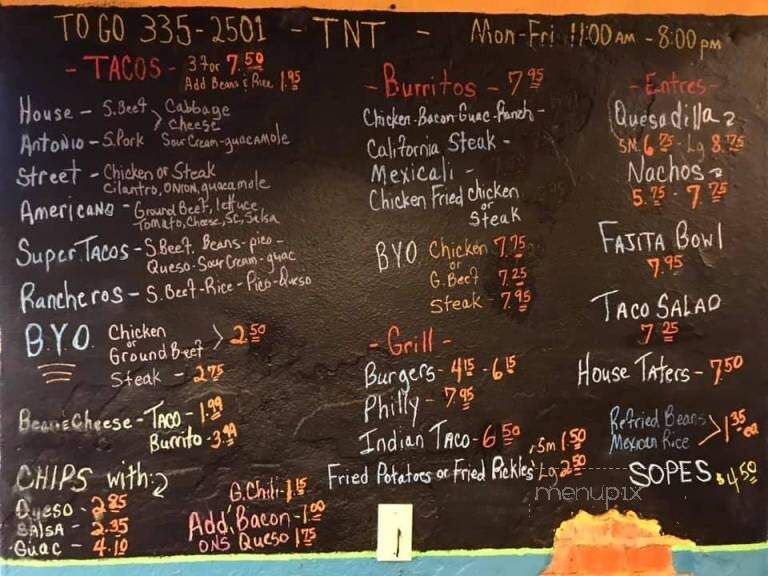 TO GO 335-2501 - TNT - Mon-Fri 11:00 AM - 8:00 pm
- TACOS - 3 for 7.50
Add Beans & Rice 1.95
House - S.Beef > Cabbage
Cheese
Antonio - S.Pork Sour Cream-guacamole
Street - Chicken or Steak
Cilantro, ONION, guacamole
Americano - Ground Beef, lettuce,
Tomato, Cheese, SC, Salsa
Super Tacos - S.Beef. Beans-pico-
Queso-Sour Cream-guac
Rancheros - S.Beef-Rice-Pico-Queso
B.Y.O. Chicken
or
Ground Beef > 2.50
Steak - 2.75
Bean & Cheese - Taco - 1.99
Burrito - 3.99
CHIPS with:
Queso - 2.85
SALSA - 2.35
Guac - 4.10
G.Chili - 1.15
Add Bacon - 1.00
ONS Queso 1.75
- Burritos - 7.95
Chicken-Bacon-Guac-Ranch -
California Steak -
Mexicali -
Chicken Fried Chicken
or
Steak
BYO Chicken 7.75
or
G.Beef 7.25
Steak - 7.95
- Grill -
Burgers - 4.15 - 6.15
Philly - 7.95
Indian Taco - 6.50
Fried Potatoes or Fried Pickles Sm 1.50
Lg 2.50
- Entres -
Quesadilla
SM. 6.75 - Lg 8.75
Nachos
5.75 - 7.75
FAJITA BOWL
7.95
TACO SALAD
7.25
House Taters - 7.50
Refried Beans
Mexican Rice > 1.35 ea
SOPES $4.50
menupix